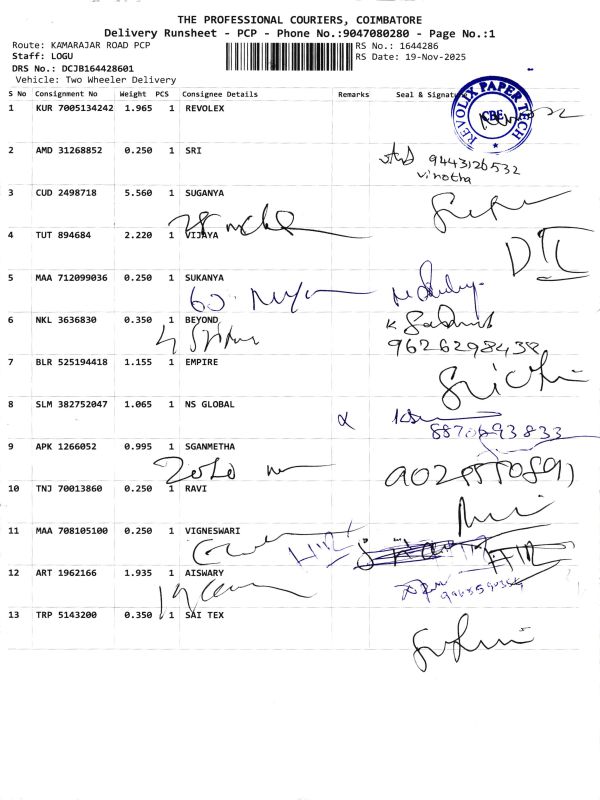 THE PROFESSIONAL COURIERS, COIMBATORE
Delivery Runsheet - PCP - Phone No.:9047080280 - Page No.:1
Route: KAMARAJAR ROAD PCP
RS No.: 1644286
Staff: LOGU
RS Date: 19-Nov-2025
DRS No.: DCJB164428601
Vehicle: Two Wheeler Delivery
S No Consignment No Weight PCS Consignee Details Remarks Seal & Signature
REVOLIX PAPER TECH
CBE
1 KUR 7005134242 1.965 1 REVOLEX
2 AMD 31268852 0.250 1 SRI
9443126532
vinotha
3 CUD 2498718 5.560 1 SUGANYA
4 TUT 894684 2.220 1 VIJAYA
5 MAA 712099036 0.250 1 SUKANYA
6 NKL 3636830 0.350 1 BEYOND
9626298438
7 BLR 525194418 1.155 1 EMPIRE
8 SLM 382752047 1.065 1 NS GLOBAL
9 APK 1266052 0.995 1 SGANMETHA
10 TNJ 70013860 0.250 1 RAVI
11 MAA 708105100 0.250 1 VIGNESWARI
12 ART 1962166 1.935 1 AISWARY
13 TRP 5143200 0.350 1 SAI TEX